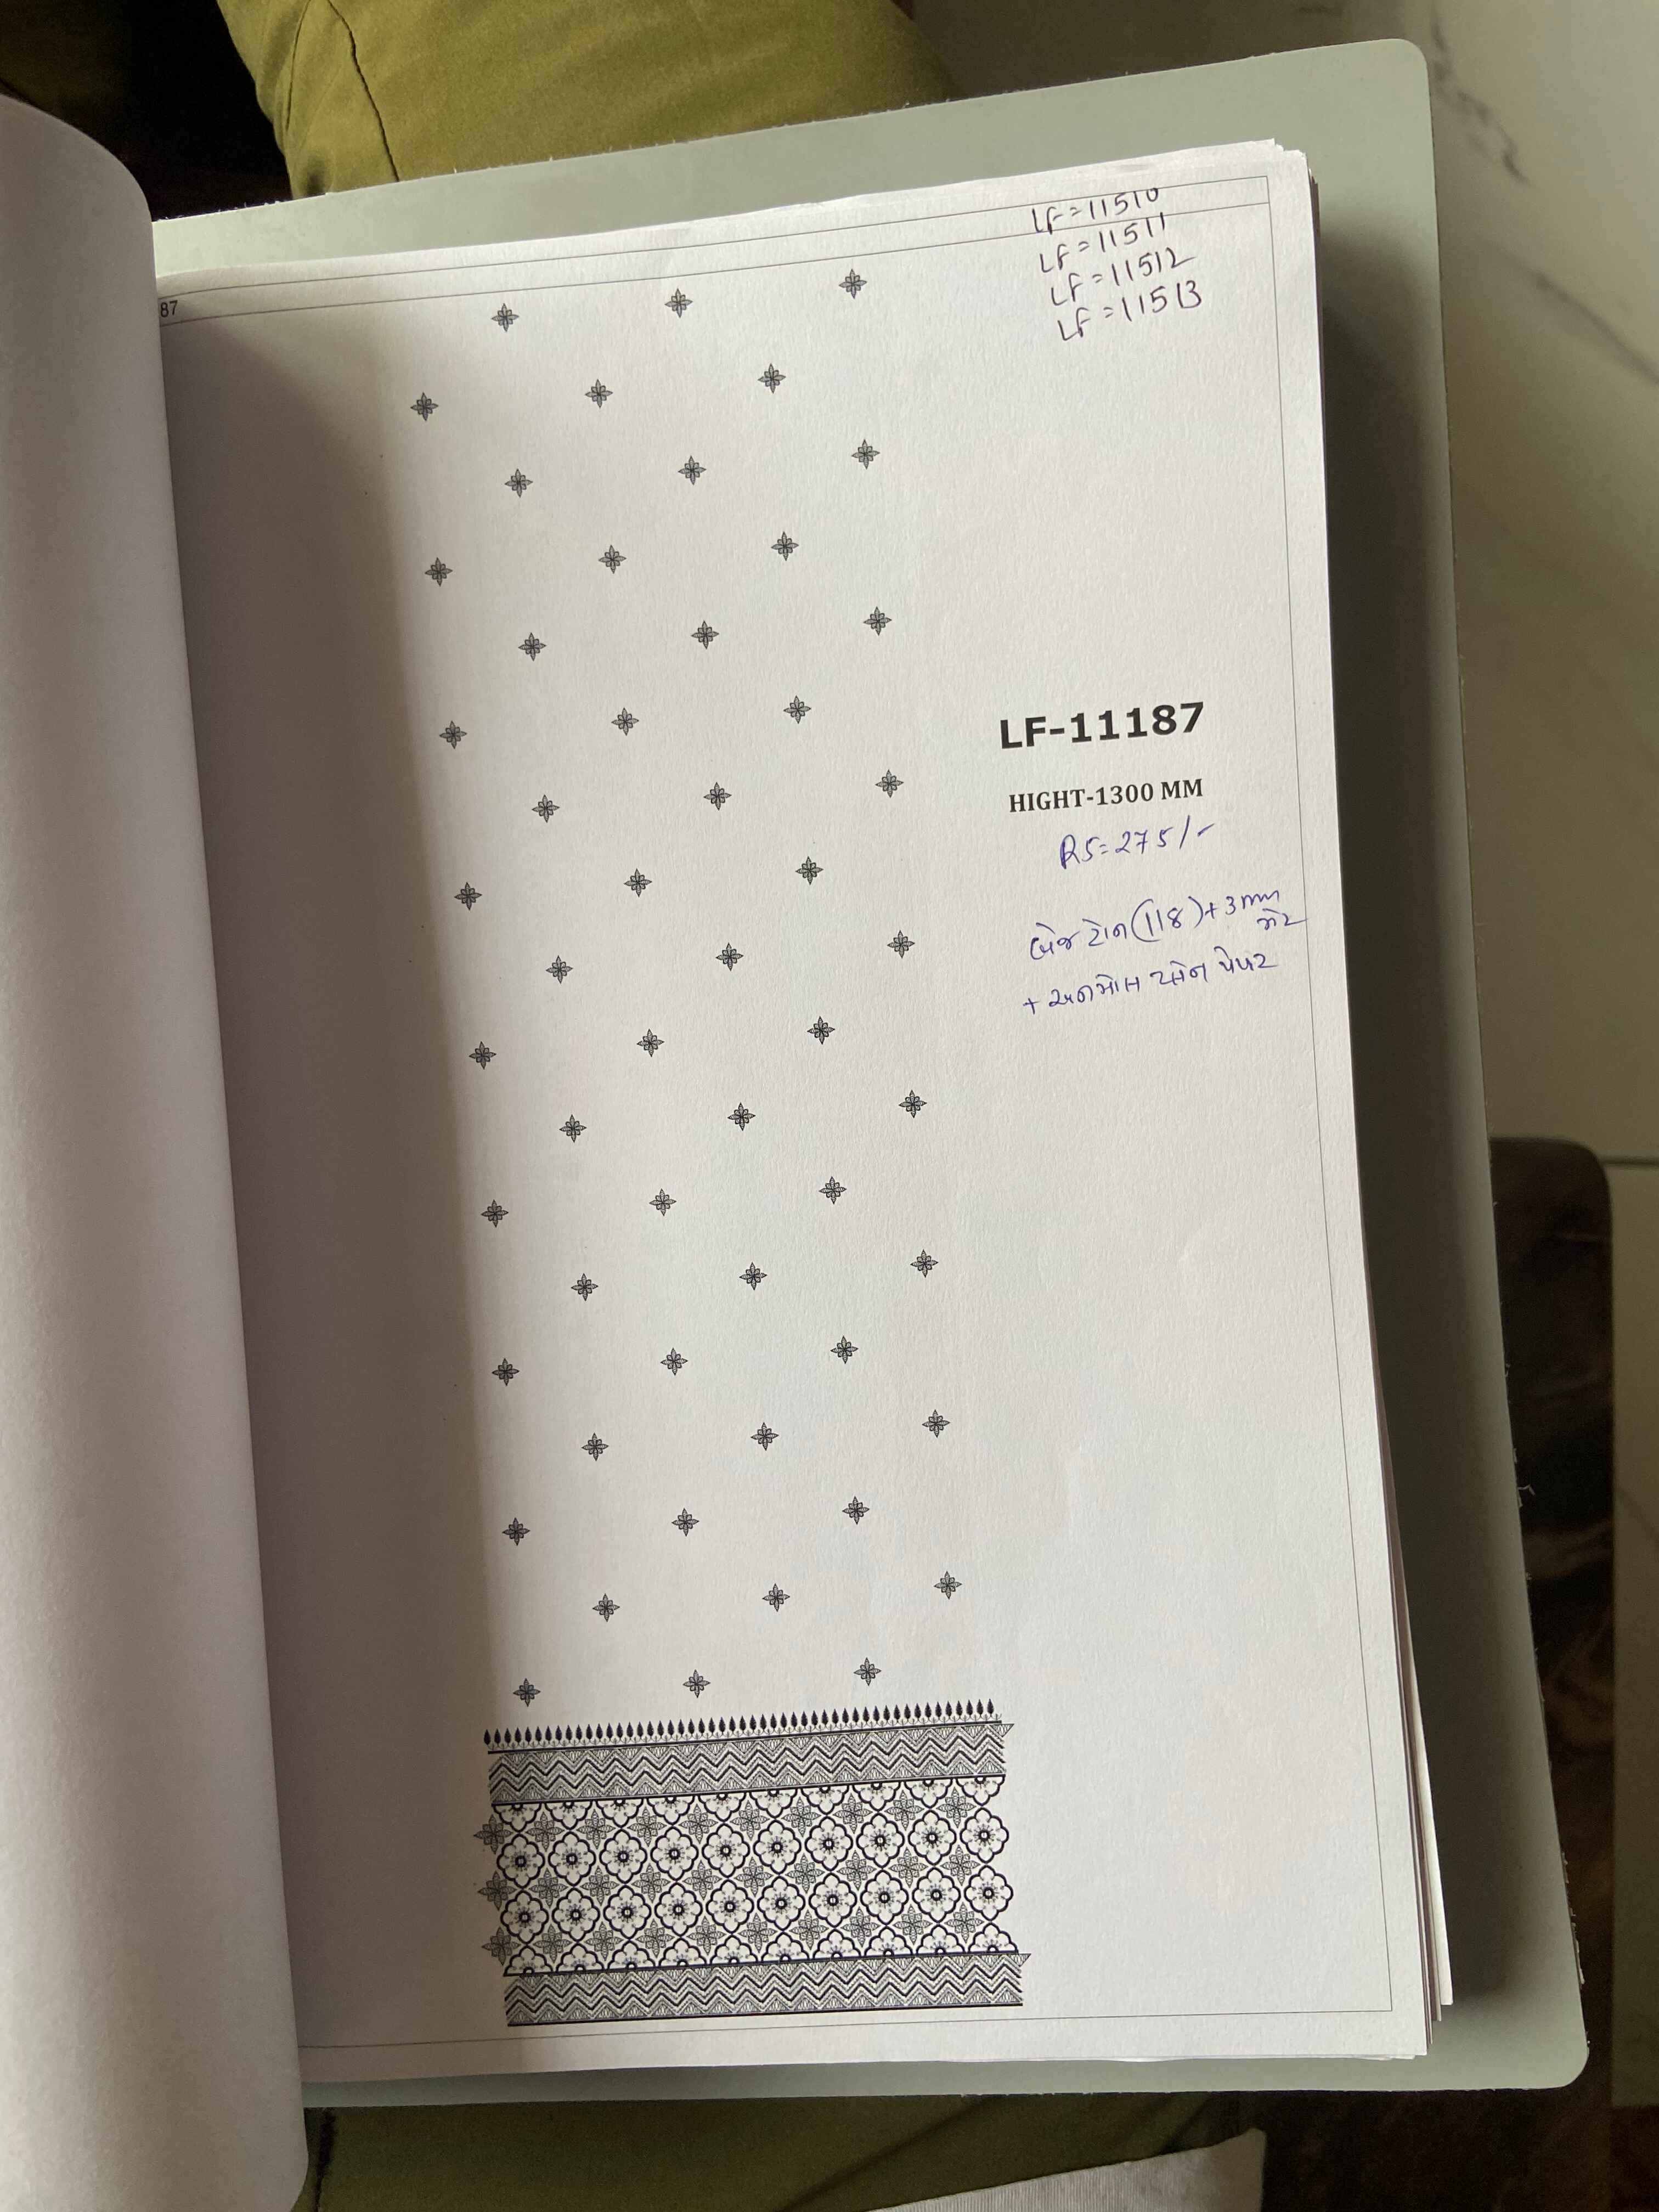 87
LF=11510
LF=11511
LF=11512
LF=11513
LF-11187
HIGHT-1300 MM
RS=275/-
ટોન(118)+3mm
મેટ
+ અનમોલ સ્ટોન પેપર